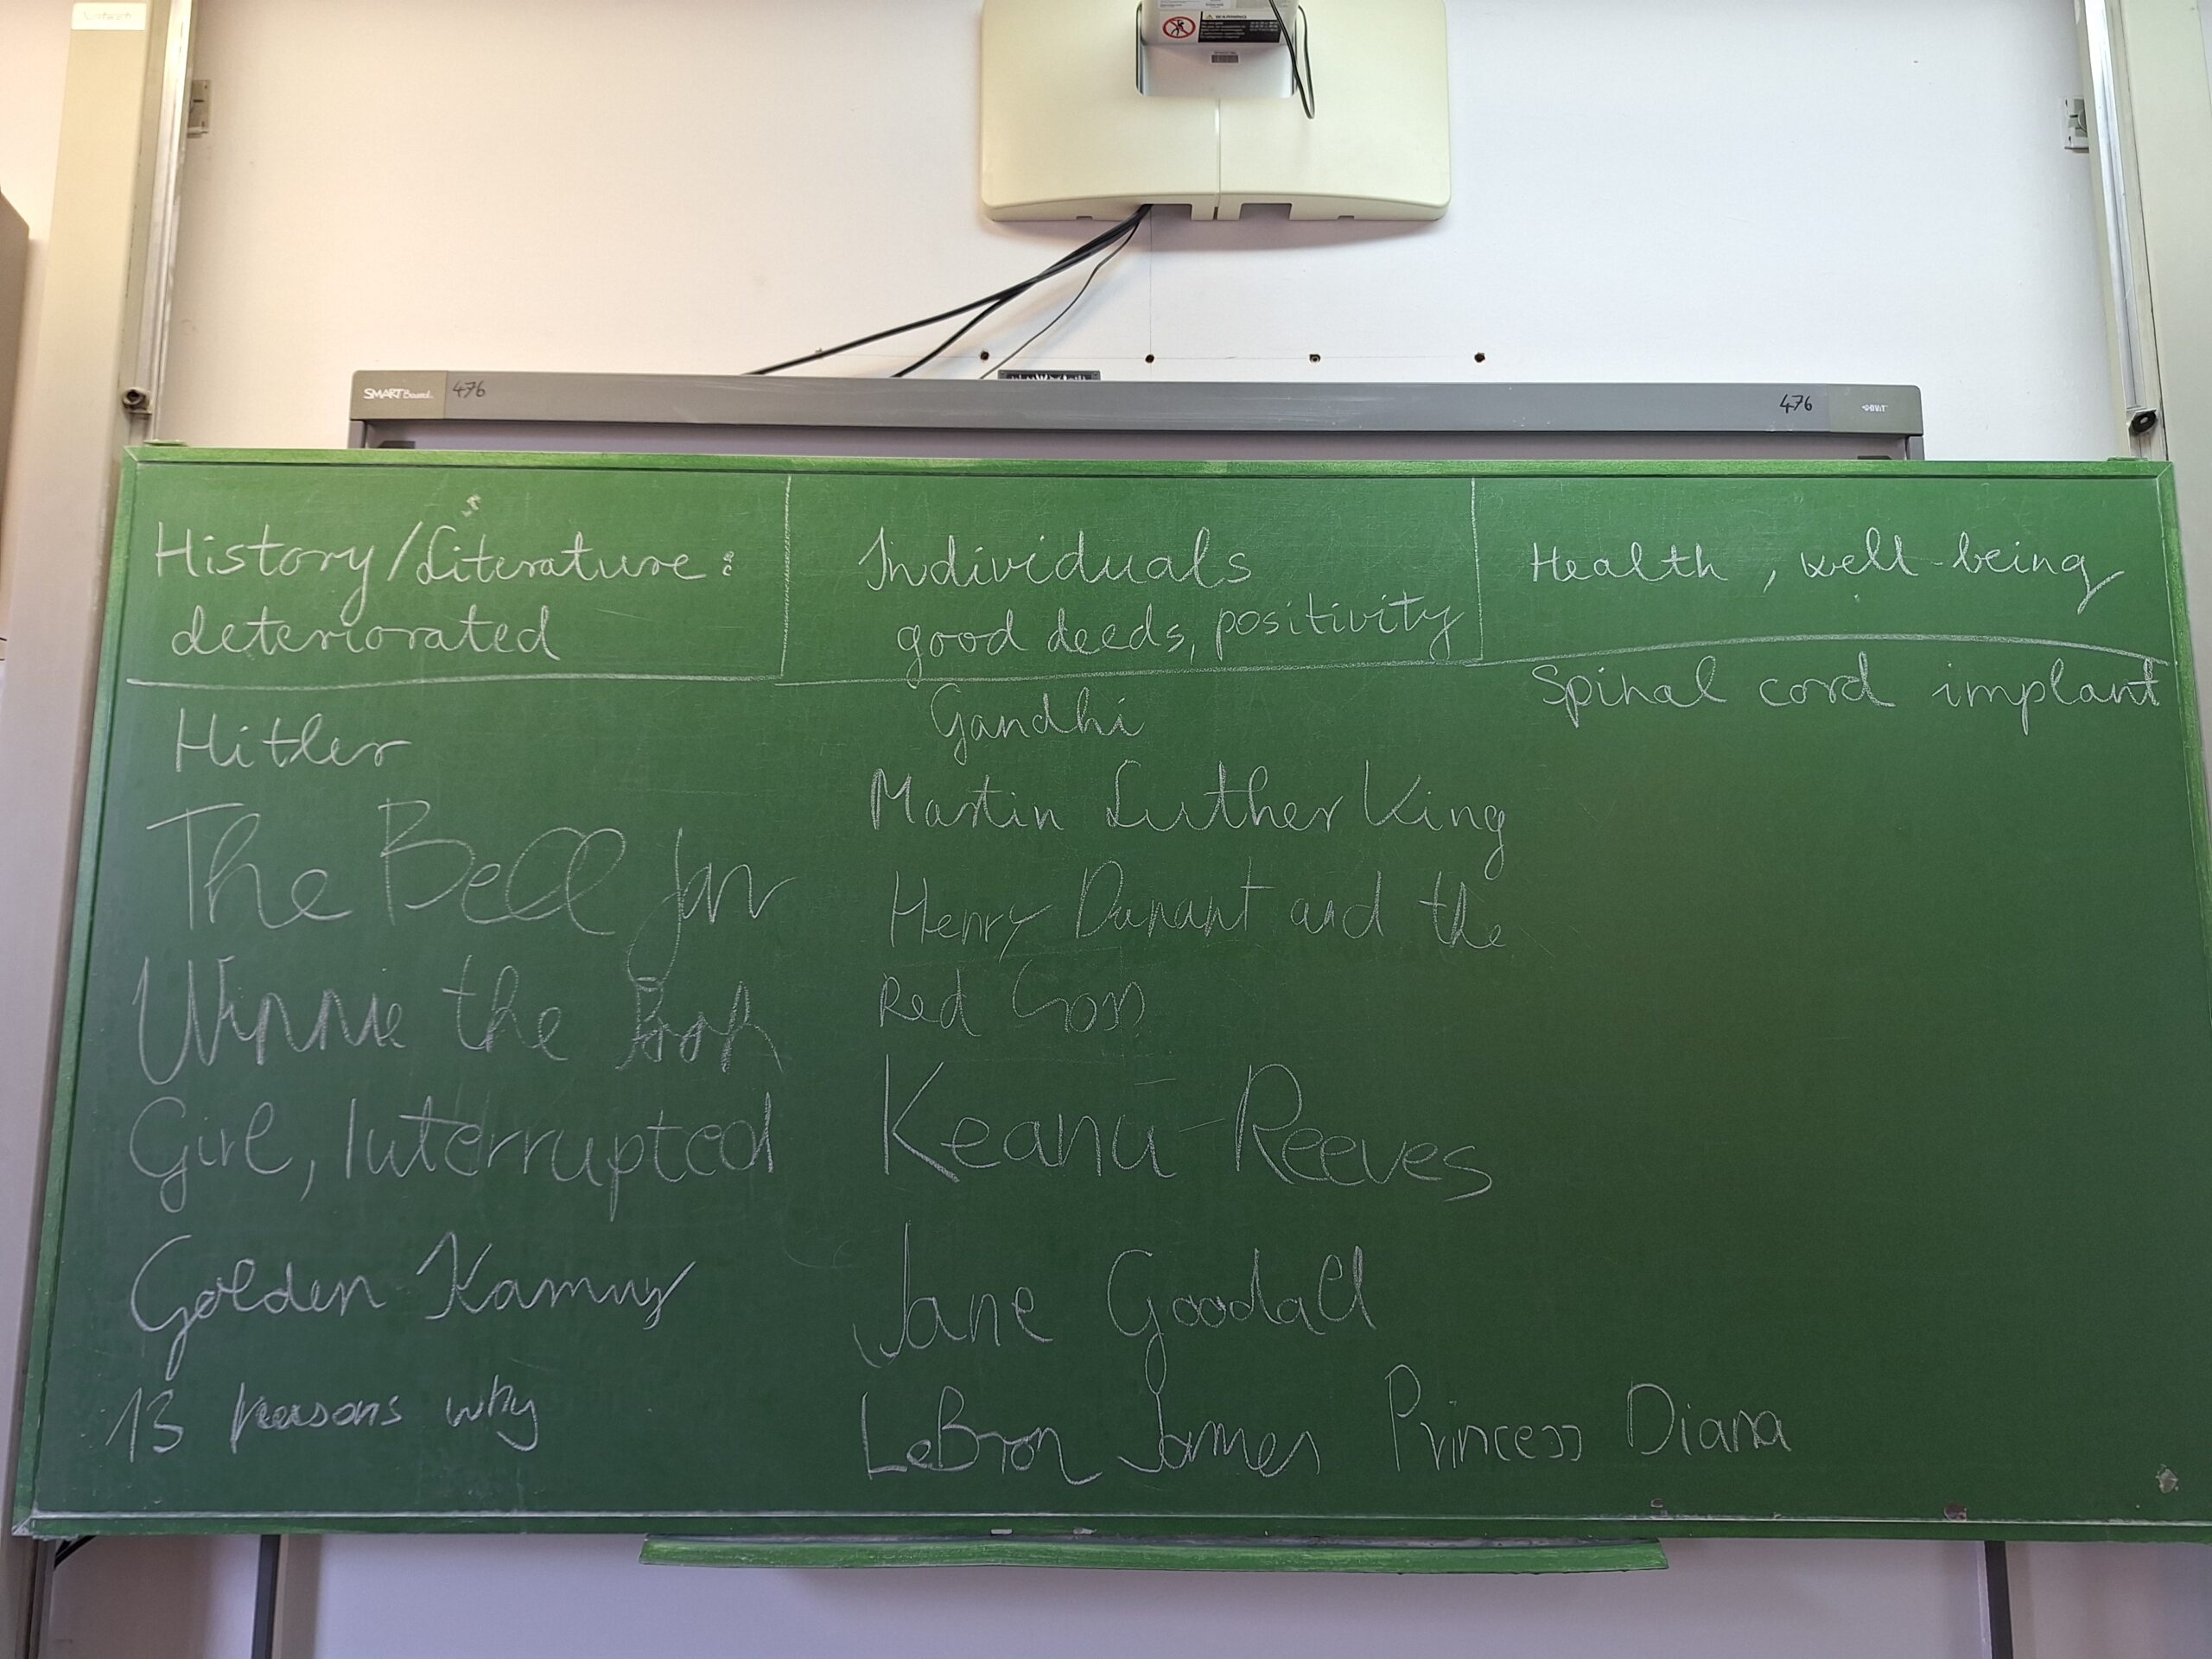 SMART Board
476
476
History/Literature:
deteriorated
Hitler
The Bell Jar
Winnie the Pooh
Girl, Interrupted
Golden Kamuy
13 reasons why
Individuals
good deeds, positivity
Gandhi
Martin Luther King
Henry Dunant and the
Red Cross
Keanu Reeves
Jane Goodall
LeBron James Princess Diana
Health, well-being
Spinal cord implant